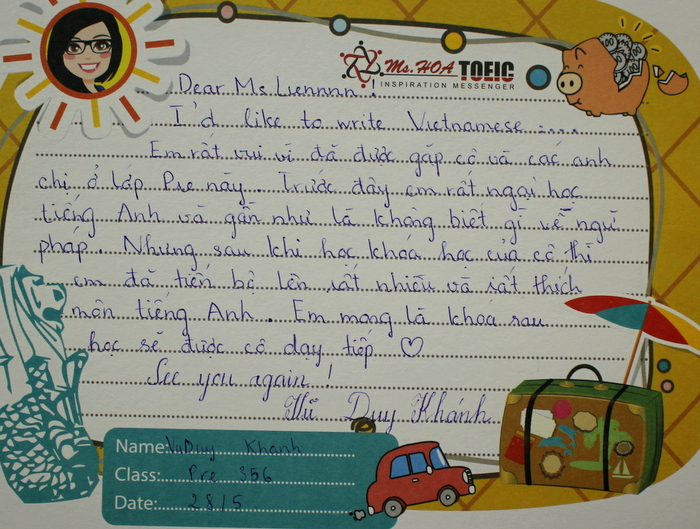 Ms. HOA TOEIC
INSPIRATION MESSENGER
Dear Ms. Liennnn !
I'd like to write Vietnamese :....
Em rất vui vì đã được gặp cô và các anh
chị ở lớp Pre này. Trước đây em rất ngại học
tiếng Anh và gần như là không biết gì về ngữ
pháp. Nhưng sau khi học khóa học của cô thì
em đã tiến bộ lên rất nhiều và rất thích
môn tiếng Anh. Em mong là khóa sau
học sẽ được cô dạy tiếp ♡
See you again !
Vũ Duy Khánh
Name: Vu Duy Khanh
Class: Pre 356
Date: 28/5